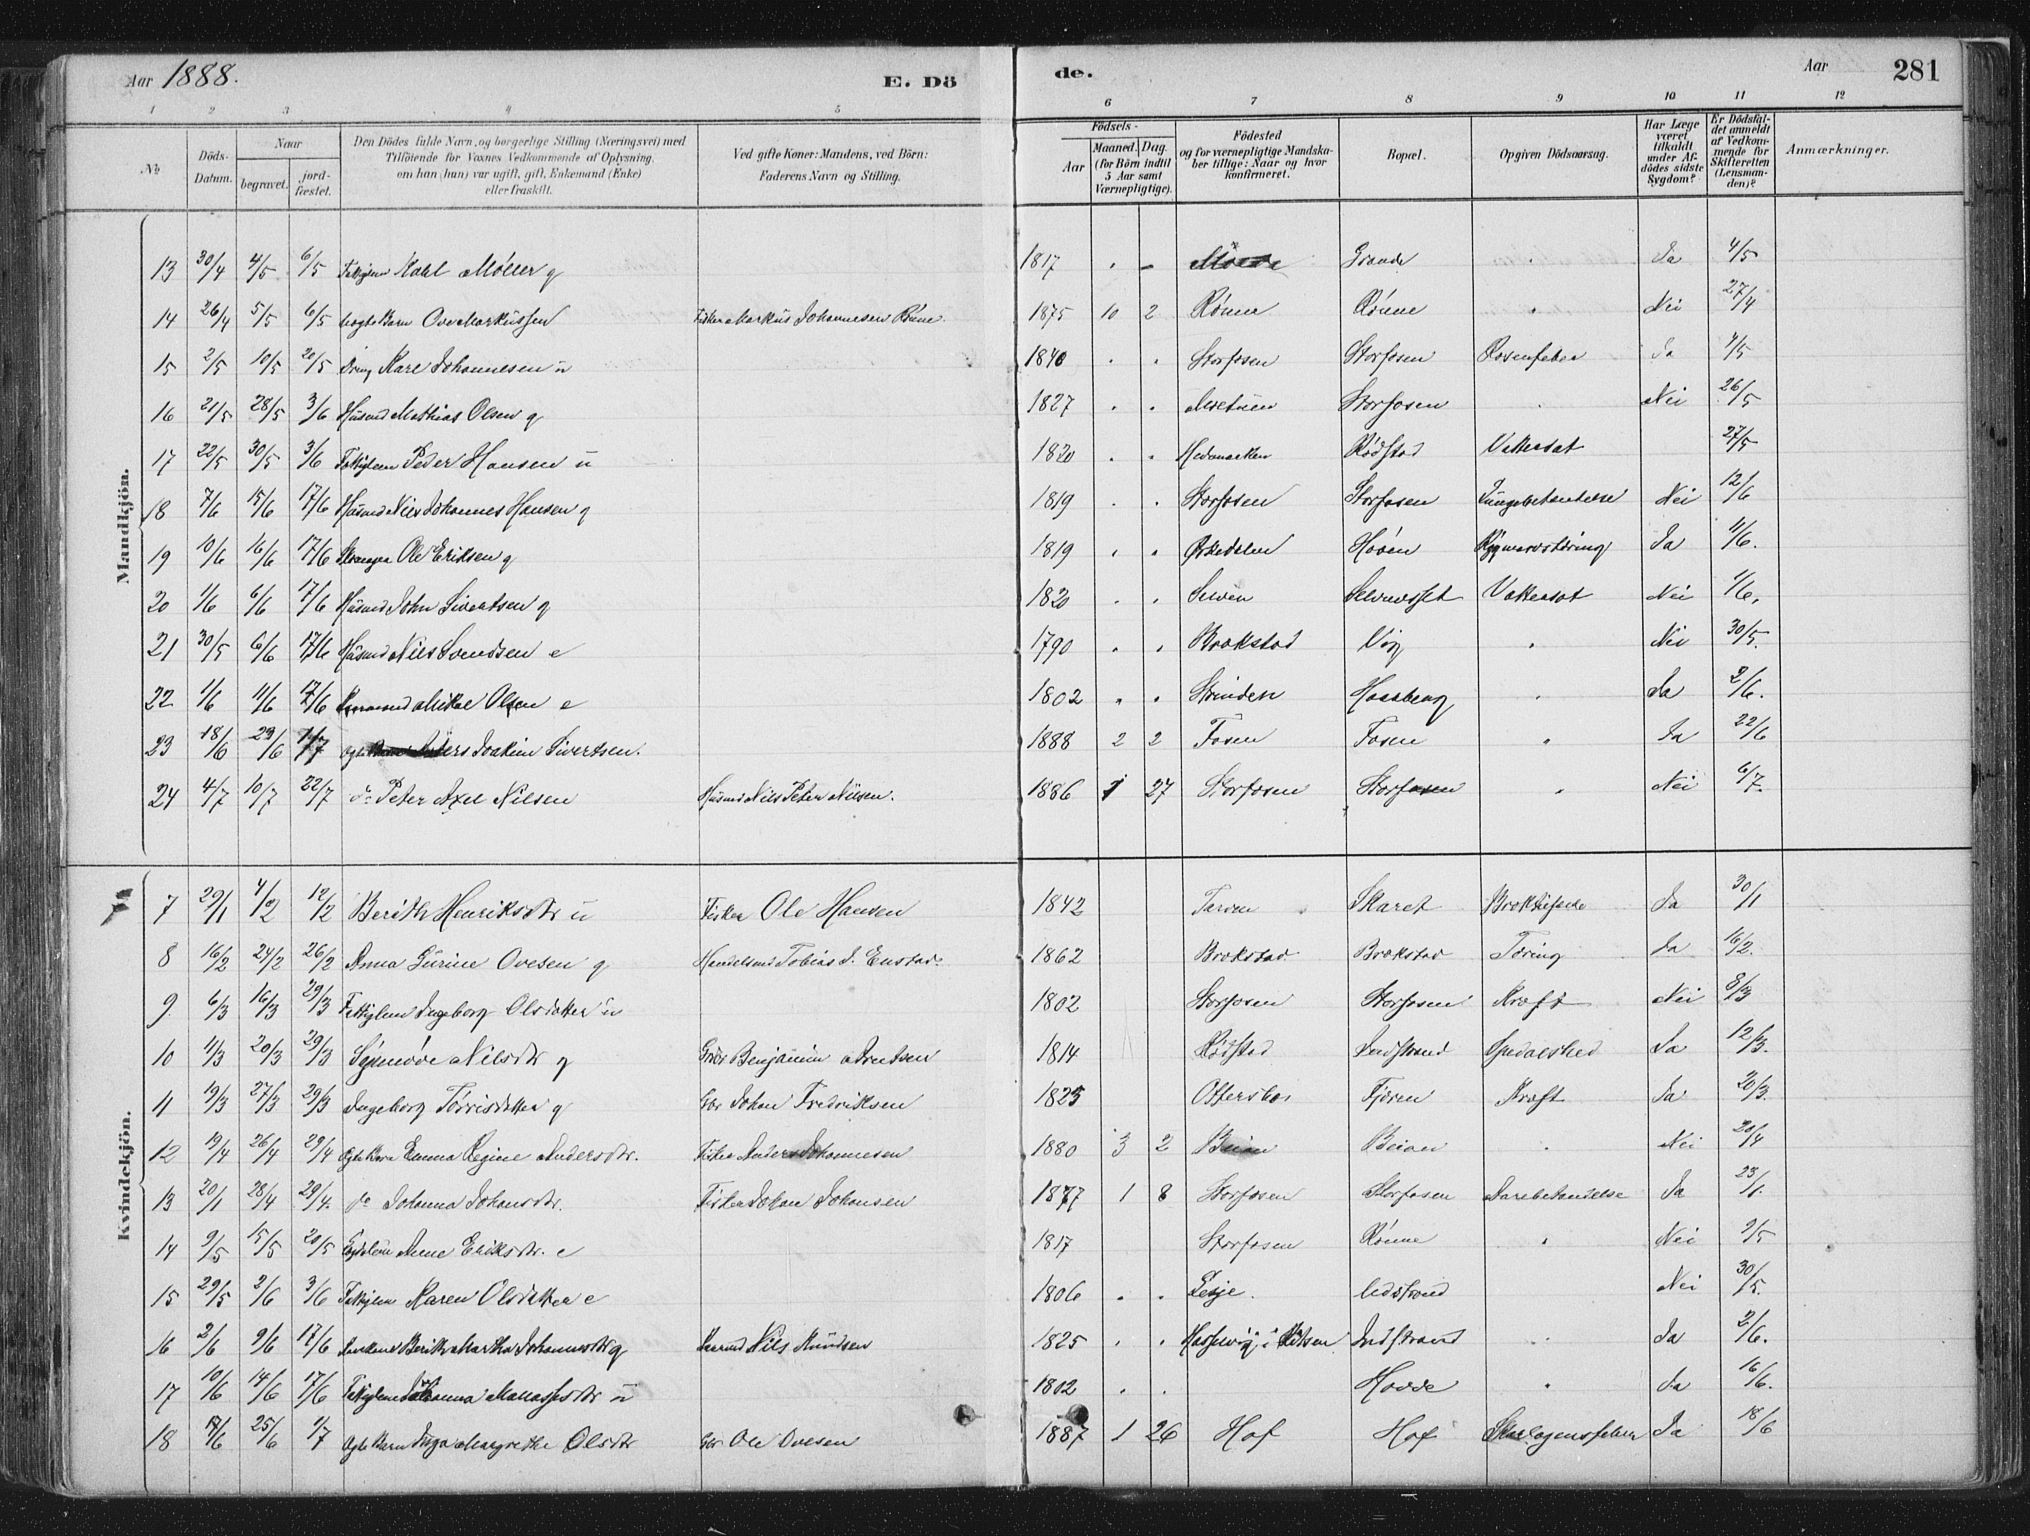 Aar 1888. E. Dö de. Aar 281
1 2 3 4 5 6 7 8 9 10 11 12
No
Döds-Datum.
Naar
begravet.
jord-fæstet.
Den Dödes fulde Navn, og borgerlige Stilling (Næringsvei) med
Tilföiende for Voxnes Vedkommende af Oplysning,
om han (hun) var ugift, gift, Enkemand (Enke)
eller fraskilt.
Ved gifte Koner: Mandens, ved Börn:
Faderens Navn og Stilling.
Födsels-
Aar
Maaned. Dag.
(for Börn indtil
5 Aar samt
Værnepligtige).
Födested
og for værnepligtige Mandska-
ber tillige: Naar og hvor
konfirmeret.
Bopæl.
Opgiven Dödsaarsag.
Har Læge
været
tilkaldt
under Af-
dödes sidste
Sygdom?
Er Dödsfal-
det anmeldt
af Vedkom-
mende for
Skifteretten
(Lensman-
den)?
Anmærkninger.
Mandkjön.
13 30/4 4/5 6/5 Møller g 1817 Grande Ja 4/5
14 26/4 5/5 6/5 Ove Markussen Fisker Markus Johannesen Rönne 1875 10 2 Rönne Rönne Nei 27/4
15 2/5 10/5 20/5 Dreng Karl Johannesen u 1840 Storfosen Storfosen Rosenfeber Ja 4/5
16 21/5 28/5 3/6 Husmd Mathias Olsen g 1827 Storfosen Nei 26/5
17 22/5 30/5 3/6 Fattiglem Peder Hansen u 1820 Hedemarken Rødstad Vattersot 27/5
18 7/6 15/6 17/6 Husmd Nils Johannes Hansen g 1819 Storfosen Storfosen Lungebetendelse Nei 12/6
19 10/6 16/6 17/6 Ole Eriksen g 1819 Ørkedalen Hoven Ja 11/6.
20 1/6 6/6 17/6 Husmd John Sivertsen g 1820 Vattersot Nei 1/6.
21 30/5 6/6 17/6 Husmd Nils Svendsen e 1790 Brækstad Nei 30/5.
22 1/6 11/6 17/6 Mikal Olsen e 1802 Strinden Ja 2/6.
23 18/6 29/6 1/7 Joakim Sivertsen. 1888 2 2 Fosen Fosen Ja 22/6
24 4/7 10/7 22/7 do Peter Axel Nilsen Husmd Nils Peter Nilsen. 1886 1 27 Storfosen Storfosen Nei 6/7.
Kvindekjön.
7 29/1 4/2 12/2 Berith Henriksdtr u Fisker Ole Hansen 1842 Tarven Skaret Ja 30/1
8 16/2 24/2 26/2 Anna Gurine Ovesen g Handelsmd Tobias J. Enstad. 1862 Brækstad Brækstad Tæring Ja 16/2.
9. 6/3 16/3 29/3 Fattiglem Ingeborg Olsdatter u 1802 Storfosen Storfosen Kræft Nei 8/3
10 4/3 20/3 29/3 Synnøve Nilsdtr g Benjamin Arntsen 1814 Rødstad Indstrand Spedalshed Ja 12/3.
11 19/3 27/3 29/3 Ingeborg g Gbr Johan Fredriksen 1825 Ottersbo Fjæren Kræft Ja 20/3.
12 19/4 26/4 29/4 Ægte Barn Emma Regine Andersdtr. Fisker Anders Johannesen 1880 3 2 Beian Beian Nei 20/4
13 20/1 28/4 29/4. do Johanna Johansdtr. Fisker Johan Johansen 1877 1 8 Storfosen Storfosen Ja 23/1.
14 9/5 15/5 20/5 Anne Eriksdtr. e 1817 Storfosen Rönne Nei 9/5
15 29/5 2/6 3/6 Fattiglem Karen Olsdatter e 1806 Lesje. Udstrand Nei 30/5.
16 2/6 9/6 17/6 Berith Martha Johannesdtr g Nils Knudsen 1825 Indstrand Ja 2/6.
17 10/6 14/6 17/6 Fattiglem Johanna u 1802 Hovde Ja 16/6.
18 17/6 25/6 1/7 Ægte Barn Inga Margrethe Olsdtr Gbr Ole Ovesen 1887 1 26 Hof Hof Skarlagensfeber Ja 18/6